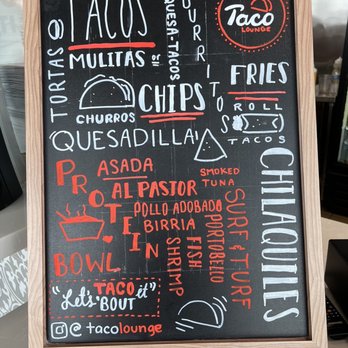 TACOS
Taco
LOUNGE
TORTAS
MULITAS or
QUESA-TACOS
BURRITOS
FRIES
CHURROS
CHIPS
ROLL
TACOS
QUESADILLA!
CHILAQUILES
PROTEIN
BOWL
ASADA
AL PASTOR
POLLO ADOBADO
BIRRIA
SMOKED
TUNA
SHRIMP
FISH
PORTOBELLO
SURF & TURF
"Let's TACO 'BOUT it"
@tacolounge